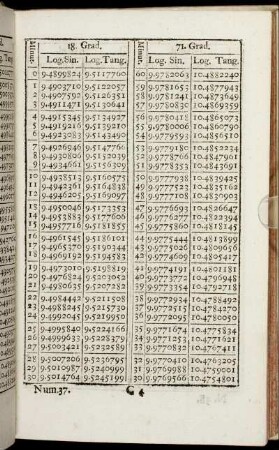 Minut. 18. Grad. Minut. 71. Grad.
Log. Sin. Log. Tang. Log. Sin. Log. Tang.
0 9.4899824 9.5117760 60 9.9782063 10.4882240
1 9.4903710 9.5122057 59 9.9781653 10.4877943
2 9.4907592 9.5126351 58 9.9781241 10.4873649
3 9.4911471 9.5130641 57 9.9780830 10.4869359
4 9.4915345 9.5134927 56 9.9780418 10.4865073
5 9.4919216 9.5139210 55 9.9780006 10.4860790
6 9.4923083 9.5143490 54 9.9779593 10.4856510
7 9.4926946 9.5147766 53 9.9779180 10.4852234
8 9.4930806 9.5152039 52 9.9778766 10.4847961
9 9.4934661 9.5156309 51 9.9778353 10.4843691
10 9.4938513 9.5160575 50 9.9777938 10.4839425
11 9.4942361 9.5164838 49 9.9777523 10.4835162
12 9.4946205 9.5169097 48 9.9777108 10.4830903
13 9.4950046 9.5173353 47 9.9776693 10.4826647
14 9.4953883 9.5177606 46 9.9776277 10.4822394
15 9.4957716 9.5181855 45 9.9775860 10.4818145
16 9.4961545 9.5186101 44 9.9775444 10.4813899
17 9.4965370 9.5190344 43 9.9775026 10.4809656
18 9.4969192 9.5194583 42 9.9774609 10.4805417
19 9.4973010 9.5198819 41 9.9774191 10.4801181
20 9.4976824 9.5203052 40 9.9773772 10.4796948
21 9.4980635 9.5207282 39 9.9773354 10.4792718
22 9.4984442 9.5211508 38 9.9772934 10.4788492
23 9.4988245 9.5215730 37 9.9772515 10.4784270
24 9.4992045 9.5219950 36 9.9772095 10.4780050
25 9.4995840 9.5224166 35 9.9771674 10.4775834
26 9.4999633 9.5228379 34 9.9771253 10.4771621
27 9.5003421 9.5232589 33 9.9770832 10.4767411
28 9.5007206 9.5236795 32 9.9770410 10.4763205
29 9.5010987 9.5240999 31 9.9769988 10.4759001
30 9.5014764 9.5245199 30 9.9769566 10.4754801
Num. 37. C 4